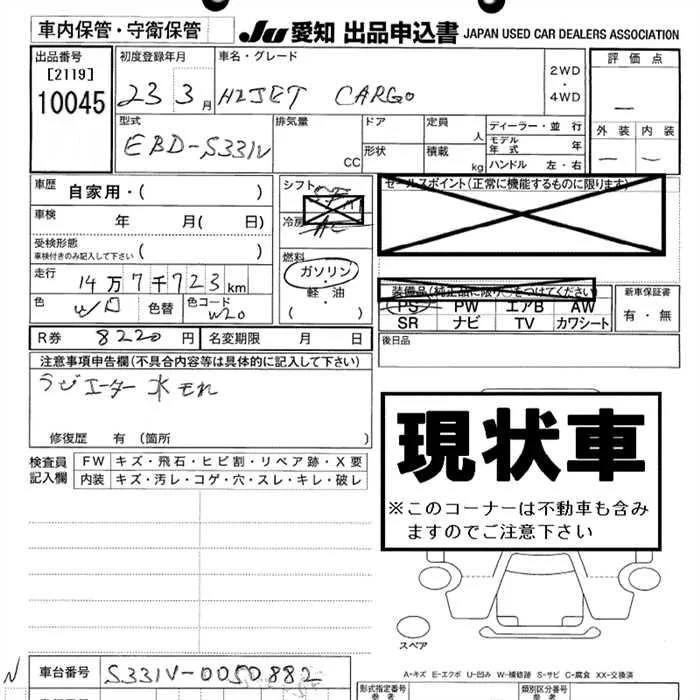 車内保管・守衛保管
Ju 愛知 出品申込書 JAPAN USED CAR DEALERS ASSOCIATION
出品番号
[2119]
10045
初度登録年月
23 3月
車名・グレード
HIJET CARGO
2WD
・
4WD
評価点
―
外装 内装
― ―
型式
EBD-S331V
排気量
CC
ドア
形状
定員
人
積載
kg
ディーラー・並行
モデル年式 年
ハンドル 左・右
車歴 自家用・( )
車検 年 月( 日)
受検形態
車検付きのみ記入して下さい ( )
走行 14万7千723km
色 W/ロ 色替 色コード W20
シフト
冷房
燃料
ガソリン
・
軽・油
( )
セールスポイント(正常に機能するものに限ります)
装備品(純正品に限り○をつけてください)
PS PW エアB AW
SR ナビ TV カワシート
新車保証書
有・無
後日品
R券 8220円 名変期限 月 日
注意事項申告欄(不具合内容等は具体的に記入して下さい)
ラジエーター水もれ
修復歴 有 (箇所 )
検査員
記入欄
FW キズ・飛石・ヒビ割・リペア跡・X要
内装 キズ・汚レ・コゲ・穴・スレ・キレ・破レ
現状車
※このコーナーは不動車も含み
ますのでご注意下さい
スペア
A-キズ E-エクボ U-凹み W-補修跡 S-サビ C-腐食 XX-交換済
N
車台番号 S331V-0050882
形式指定番号
参考
類別区分番号
参考